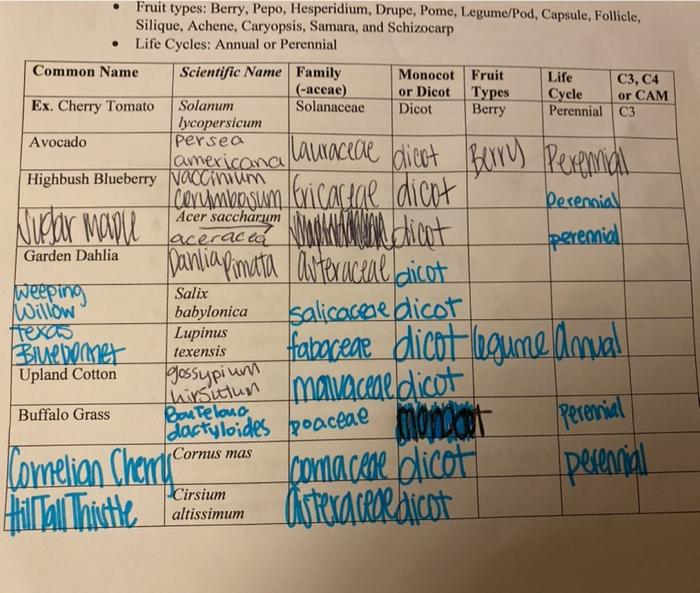 • Fruit types: Berry, Pepo, Hesperidium, Drupe, Pome, Legume/Pod, Capsule, Follicle,
Silique, Achene, Caryopsis, Samara, and Schizocarp
• Life Cycles: Annual or Perennial
Common Name Scientific Name Family (-aceae) Monocot or Dicot Fruit Types Life Cycle C3, C4 or CAM
Ex. Cherry Tomato Solanum lycopersicum Solanaceae Dicot Berry Perennial C3
Avocado persea americana Lauraceae dicot Berry Perennial
Highbush Blueberry Vaccinium corymbosum Ericaceae dicot perennial
Sugar maple Acer saccharum aceracea dicot perennial
Garden Dahlia Dahlia Pinnata asteraceae dicot
Weeping Willow Salix babylonica salicaceae dicot
Texas Bluebonnet Lupinus texensis fabaceae dicot legume annual
Upland Cotton gossypium hirsutum malvaceae dicot
Buffalo Grass Bouteloua dactyloides poaceae monocot perennial
Cornelian Cherry Cornus mas cornaceae dicot perennial
Hill Tall Thistle Cirsium altissimum Asteraceae dicot